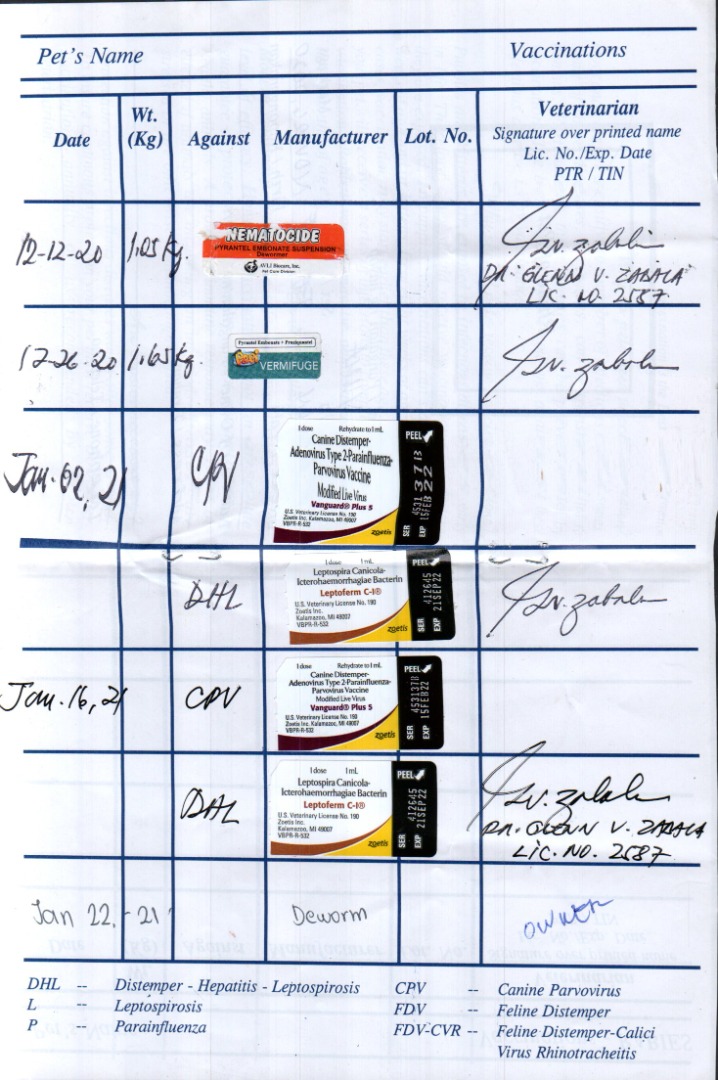 Pet's Name Vaccinations
Date Wt. (Kg) Against Manufacturer Lot. No. Veterinarian
Signature over printed name
Lic. No./Exp. Date
PTR / TIN
12-12-20 1.05 kg.
NEMATOCIDE
PYRANTEL EMBONATE SUSPENSION
Dewormer
AVLI Biocare, Inc.
Pet Care Division
DR. GLENN V. ZABALA
LIC. NO. 2587
12-26-20 1.65 kg.
Pyrantel Embonate + Praziquantel
VERMIFUGE
Jan. 02, 21 CPV
1 dose Rehydrate to 1 mL
Canine Distemper-
Adenovirus Type 2-Parainfluenza-
Parvovirus Vaccine
Modified Live Virus
Vanguard® Plus 5
U.S. Veterinary License No. 190
Zoetis Inc. Kalamazoo, MI 49007
VBPR-R-532
zoetis
PEEL
SER 453137B
EXP 15FEB22
DHL
1 dose 1 mL
Leptospira Canicola-
Icterohaemorrhagiae Bacterin
Leptoferm C-I®
U.S. Veterinary License No. 190
Zoetis Inc.
Kalamazoo, MI 49007
VBPR-R-532
zoetis
PEEL
SER 412645
EXP 21SEP22
Jan. 16, 21 CPV
1 dose Rehydrate to 1 mL
Canine Distemper-
Adenovirus Type 2-Parainfluenza-
Parvovirus Vaccine
Modified Live Virus
Vanguard® Plus 5
U.S. Veterinary License No. 190
Zoetis Inc. Kalamazoo, MI 49007
VBPR-R-532
zoetis
PEEL
SER 453137B
EXP 15FEB22
DHL
1 dose 1 mL
Leptospira Canicola-
Icterohaemorrhagiae Bacterin
Leptoferm C-I®
U.S. Veterinary License No. 190
Zoetis Inc.
Kalamazoo, MI 49007
VBPR-R-532
zoetis
PEEL
SER 412645
EXP 21SEP22
DR. GLENN V. ZABALA
LIC. NO. 2587
Jan 22, -21 Deworm OWNER
DHL -- Distemper - Hepatitis - Leptospirosis
L -- Leptospirosis
P -- Parainfluenza
CPV -- Canine Parvovirus
FDV -- Feline Distemper
FDV-CVR -- Feline Distemper-Calici
Virus Rhinotracheitis